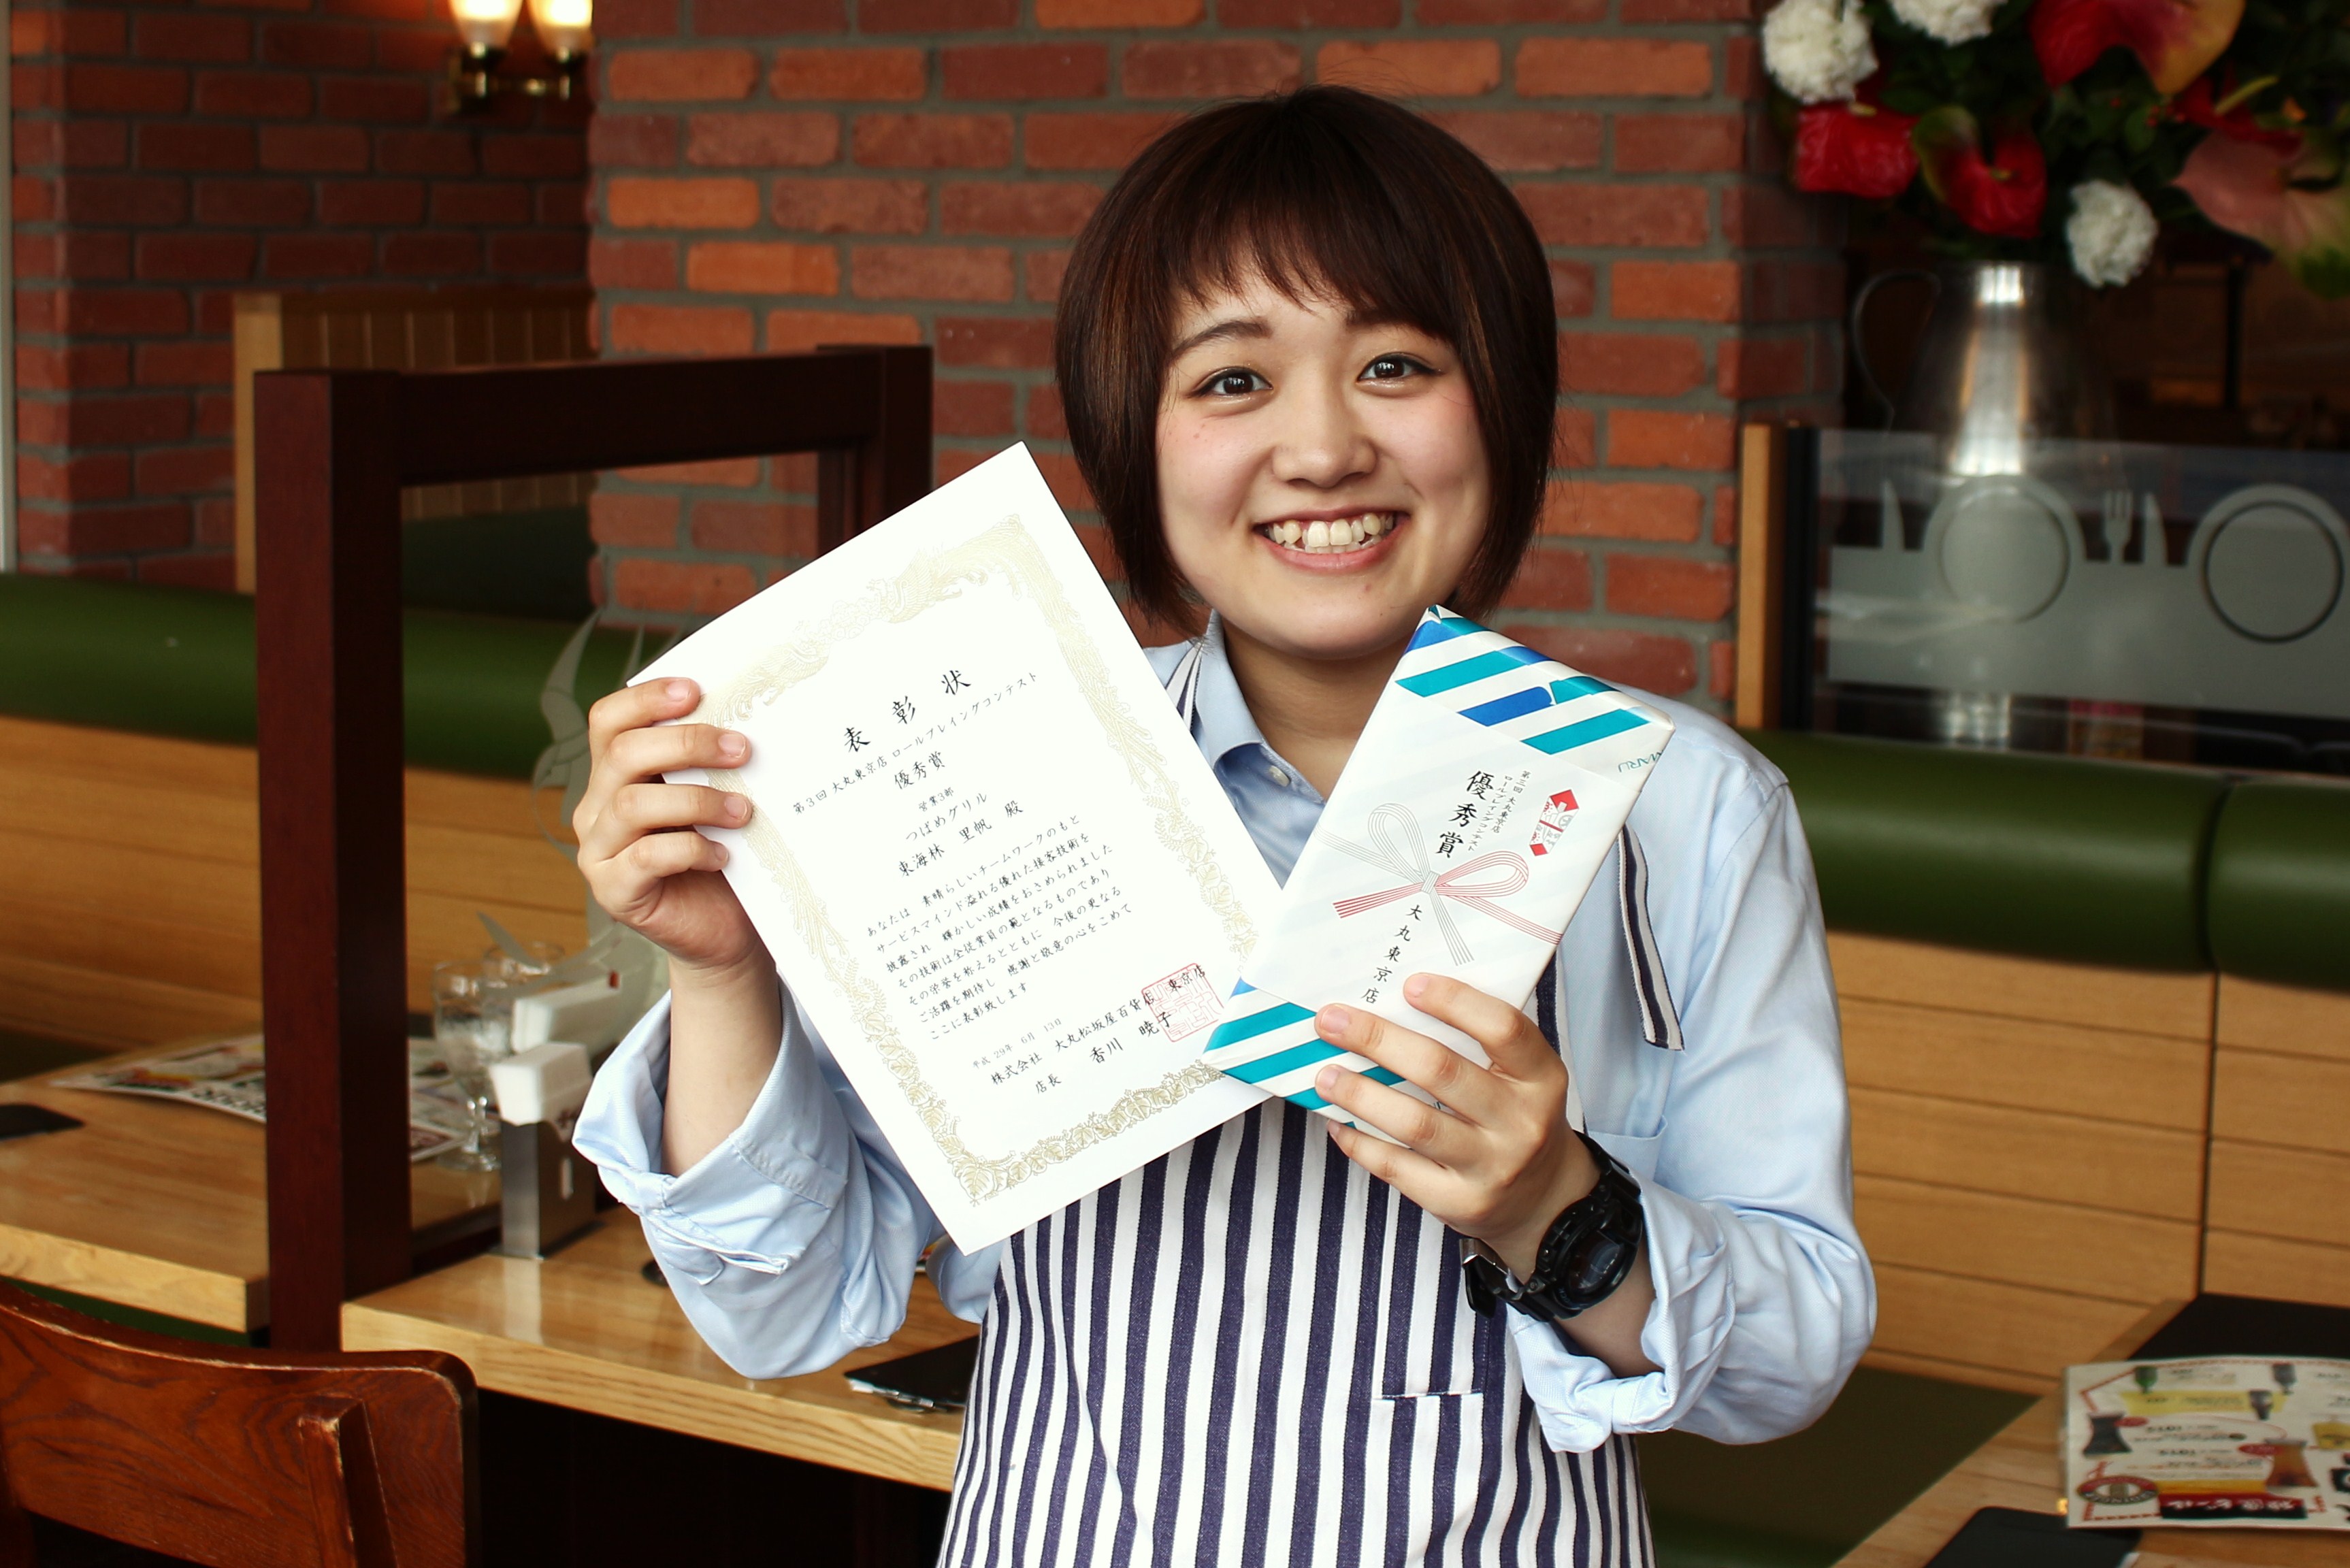 表彰状
第3回 大丸東京店 ロールプレイングコンテスト
優秀賞
営業3部
つばめグリル
東海林 里帆 殿
あなたは 素晴らしいチームワークのもと
サービスマインド溢れる優れた接客技術を
披露され 輝かしい成績をおさめられました
その技術は全従業員の範となるものであり
その栄誉を称えるとともに 今後の更なる
ご活躍を期待し 感謝と敬意の心をこめて
ここに表彰致します
平成29年 6月 13日
株式会社 大丸松坂屋百貨店 東京店
店長 香川 暁子
第三回 大丸東京店
ロールプレイングコンテスト
優秀賞
大丸東京店
MARU